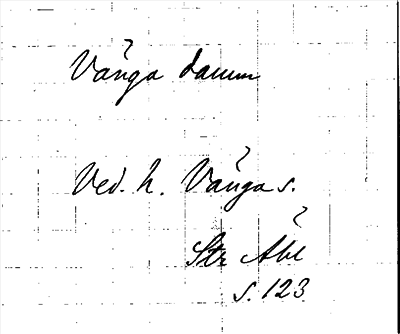 Vånga damm
Ved. h. Vånga s.
Str Åbl
s. 123